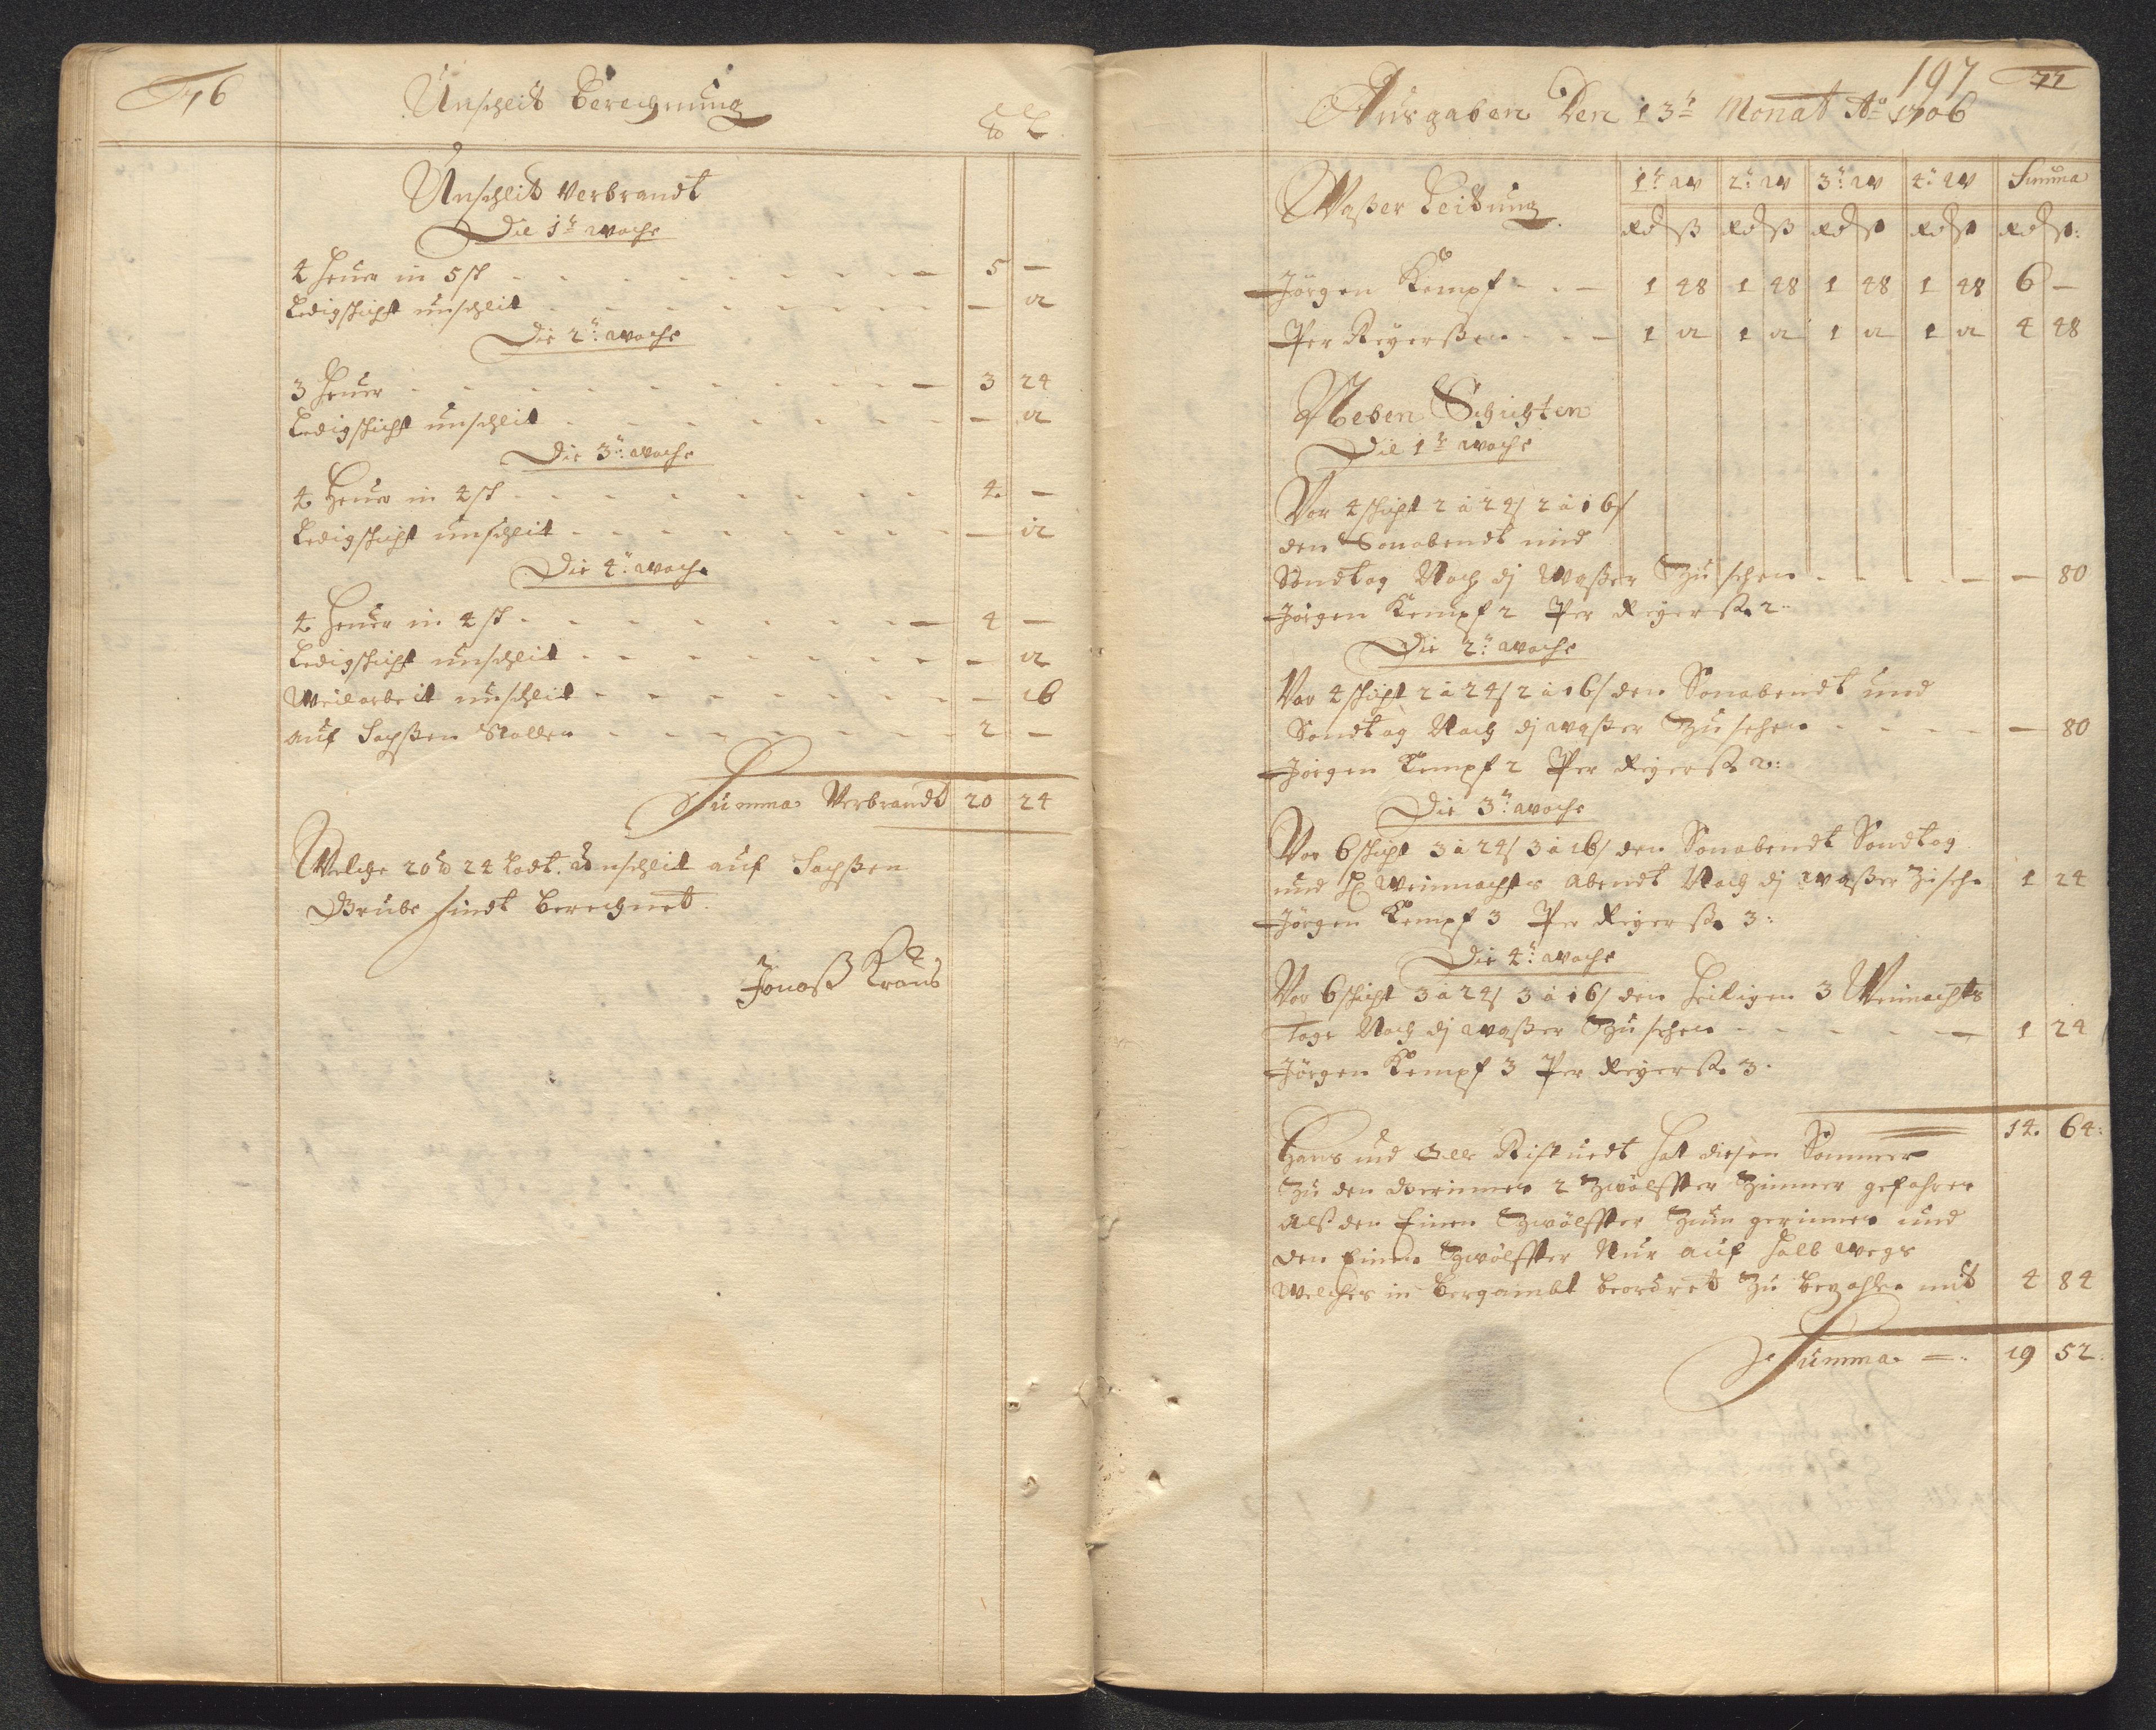 76
Unschlit Berechnung
℔ L
Unschlit Verbrandt
Die 1te woche
4 heuer in 5 st - 5 -
Ledigschicht unschlit - - 12
Die 2te woche
3 heuer - 3 24
Ledigschicht unschlit - - 12
Die 3te woche
4 heuer in 4 st - 4 -
Ledigschicht unschlit - - 12
Die 4te woche
4 heuer in 4 st - 4 -
Ledigschicht unschlit - - 12
Weilarbeit unschlit - - 16
auf Sachßen Stollen - 2 -
Summa Verbrandt 20 24
Welche 20 ℔ 24 Lodt unschlit auf Sachßen
Grube sindt Berechnet.
Jonaß Kraus
197 77
Ausgaben Den 13te Monat Ao 1706
Waßer Leitung
1te W 2te W 3te W 4te W Summa
Rdß Rdß Rdß Rdß Rdß
Jörgen Kempf - 1 48 1 48 1 48 1 48 6 -
Per Reÿerßen - 1 12 1 12 1 12 1 12 4 48
Neben Schichten
Die 1te woche
Vor 4 schicht 2 à 24/ 2 à 16/
den Sonabendt und
Sondtag Nach dz Waßer Zu sehen - - 80
Jörgen Kempf 2 Per Reÿerß. 2
Die 2te woche
Vor 4 schicht 2 à 24/ 2 à 16/ den Sonabendt und
Sondtag Nach dz waßer Zu sehen - - 80
Jörgen Kempf 2 Per Reÿerß. 2:
Die 3te woche
Vor 6 schicht 3 à 24/ 3 à 16/ den Sonabendt Sondtag
und Weinnachts abendt Nach dz waßer Zu sehn 1 24
Jörgen Kempf 3 Per Reÿerß. 3:
Die 4te woche
Vor 6 schicht 3 à 24/ 3 à 16/ den heiligen 3 Weinachts
Tage Nach dz waßer Zu sehen - 1 24
Jörgen Kempf 3 Per Reÿerß. 3.
14. 64:
Hans und Ole hat diesen Sommer
Zu den Gerinnen 2 Zwölffter Zimmer gefahren
Alß den Einen Zwölffter Zum gerinnen und
den Einen Zwölffter Nur auf halb wegs
welches in Bergambt beordret Zu bezahlen mit 4 84
Summa = 19 52.